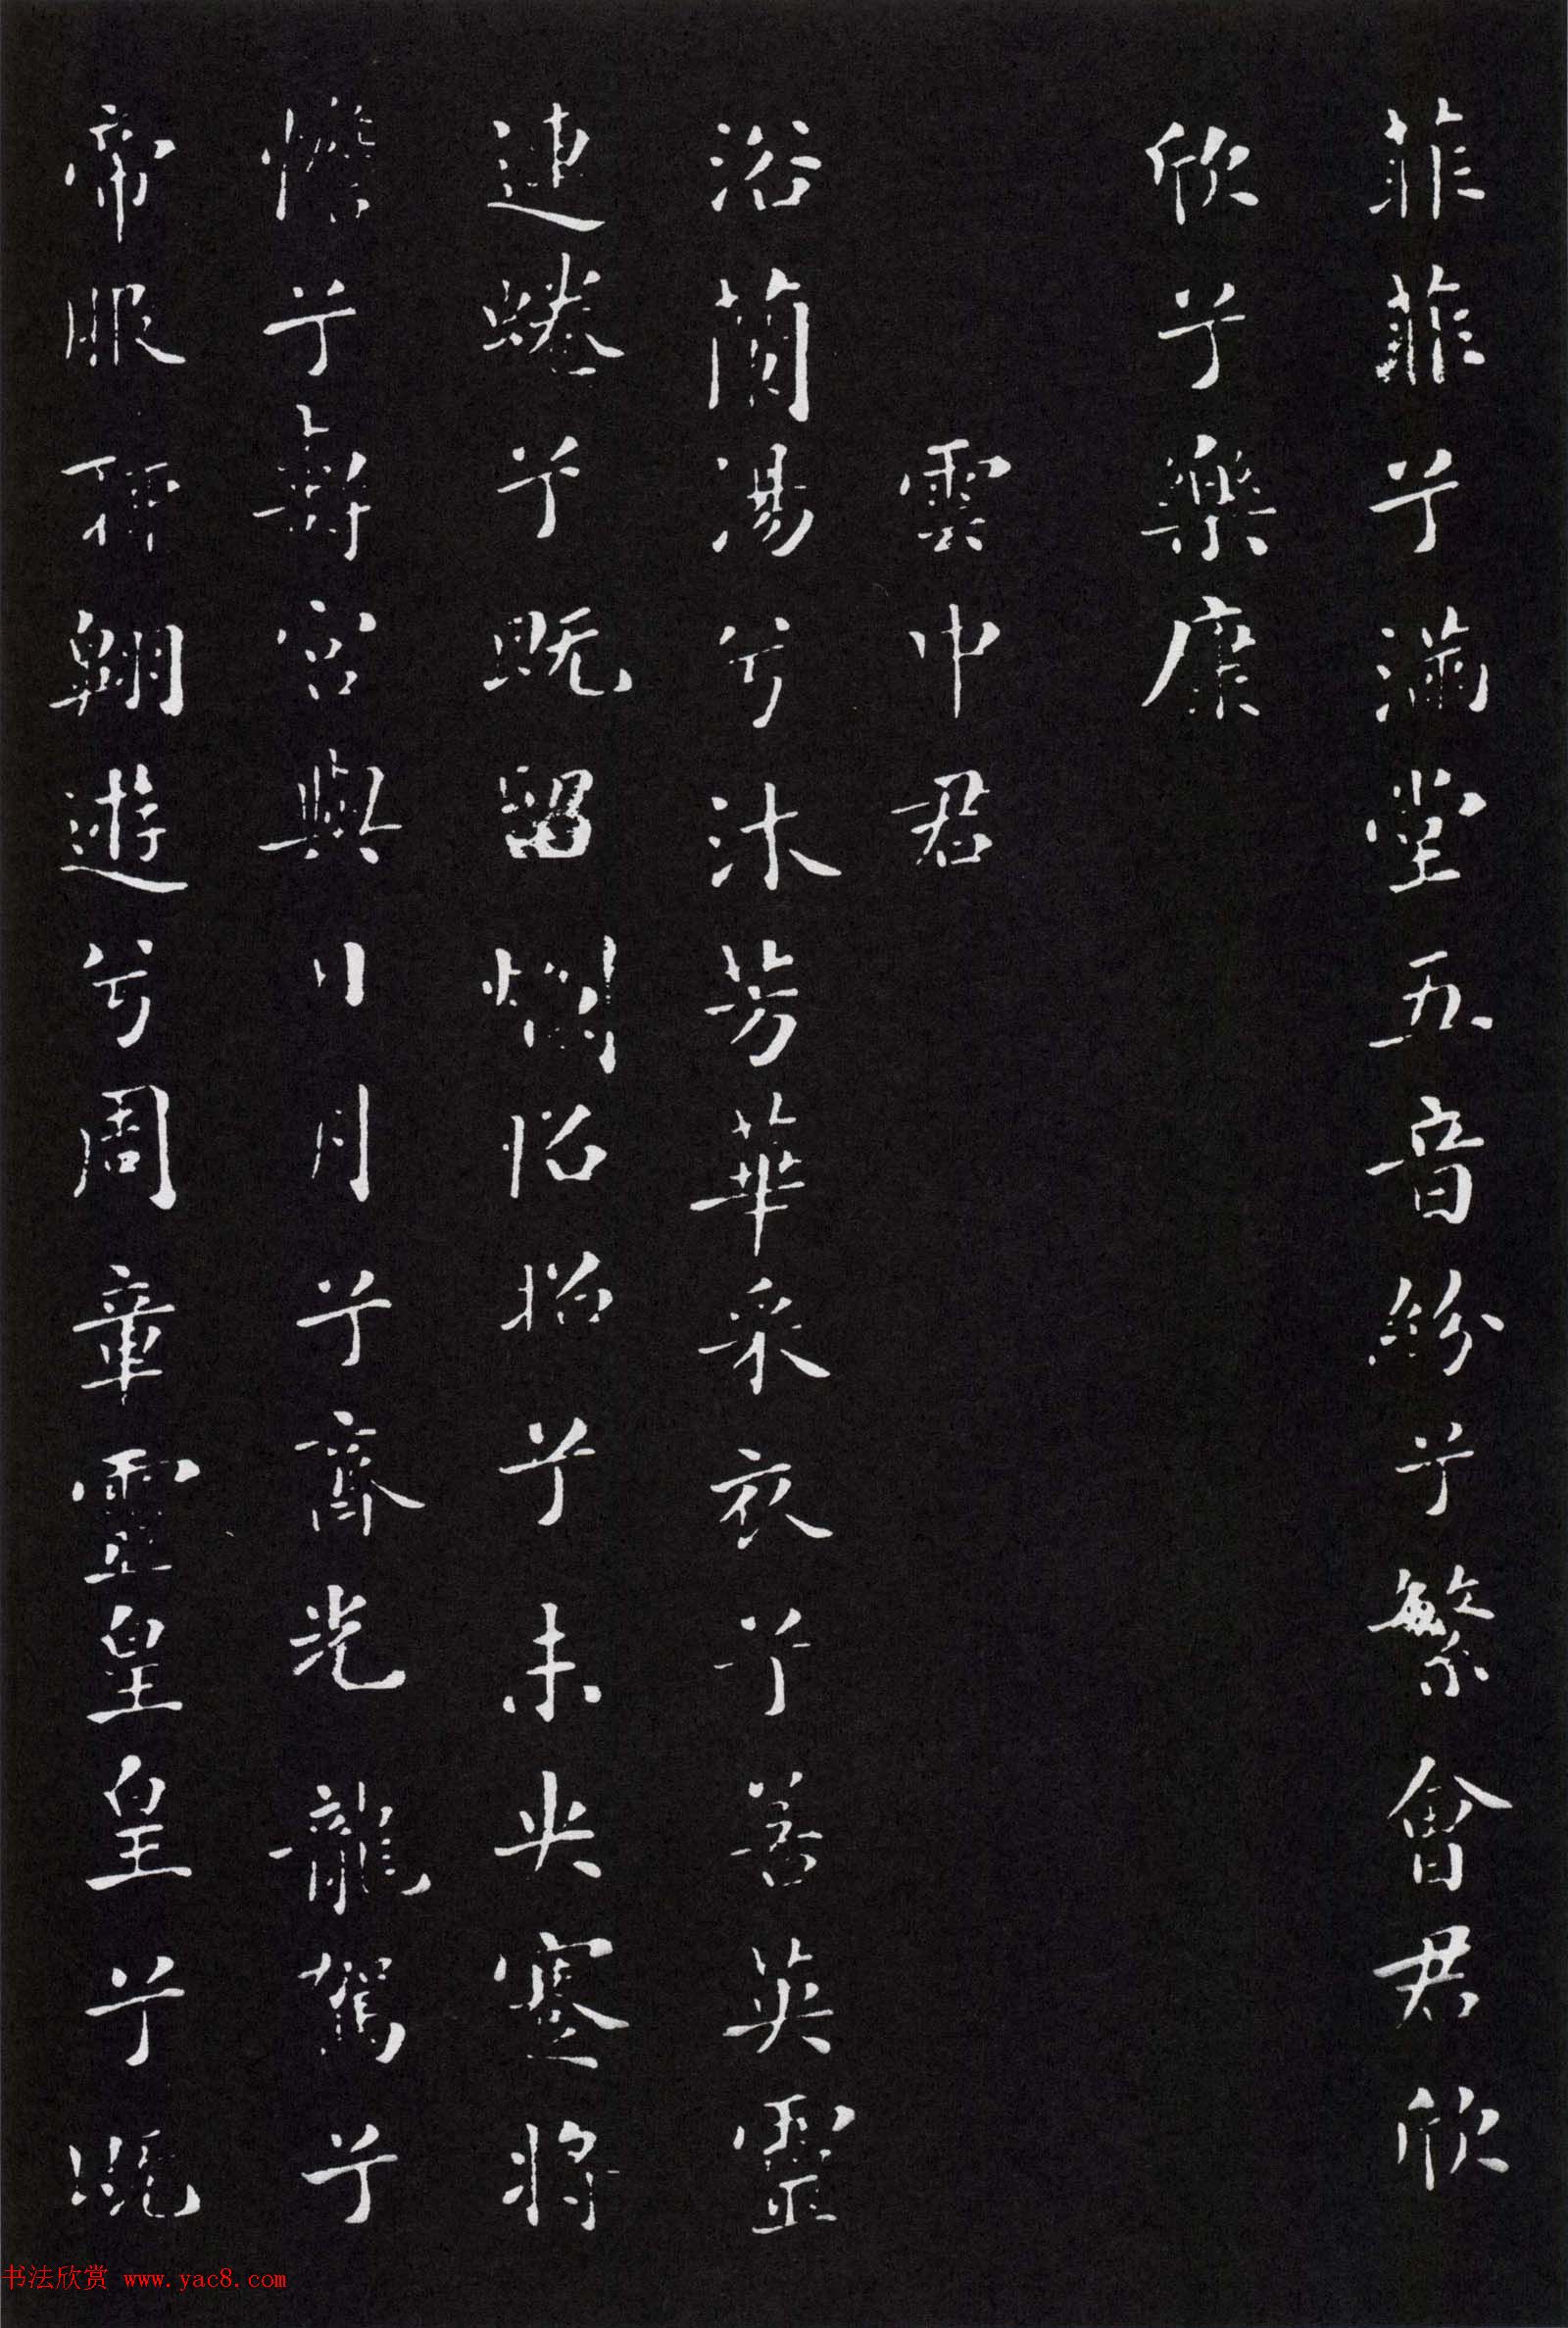 菲菲兮滿堂五音紛兮繁會君欣
欣兮樂康
雲中君
浴蘭湯兮沐芳華采衣兮若英靈
連蜷兮既留爛昭昭兮未央蹇將
憺兮壽宮與日月兮齊光龍駕兮
帝服聊翱遊兮周章靈皇皇兮既
书法欣赏 www.yac8.com